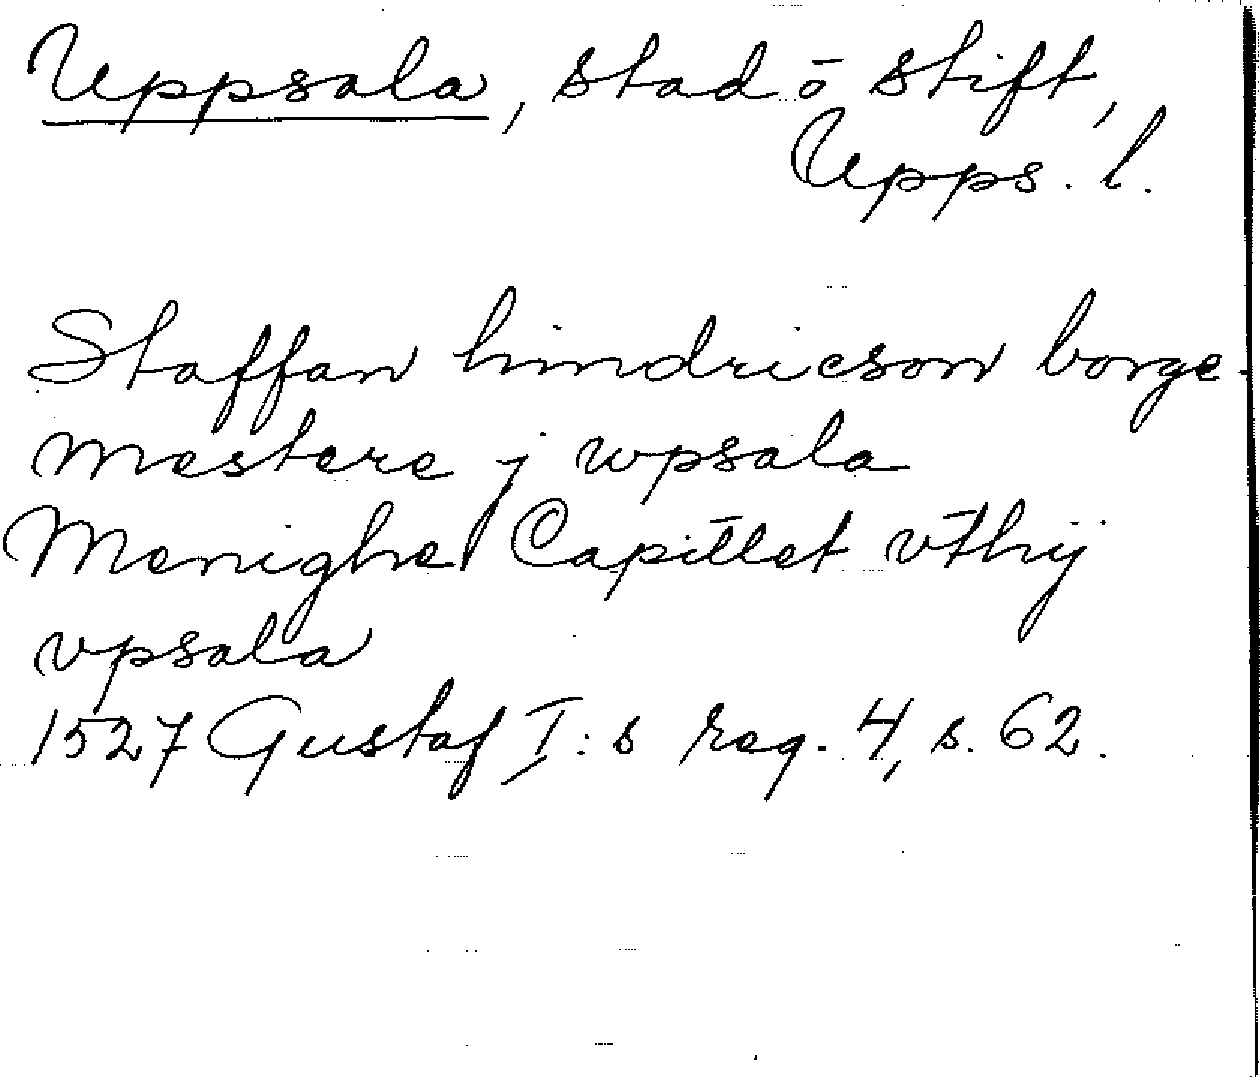 Uppsala, stad ō stift,
Upps. l.
Staffan hindricson borge-
mestere j wpsala
Menighe Capitlet vthij
vpsala
1527 Gustaf I:s reg. 4, s. 62.